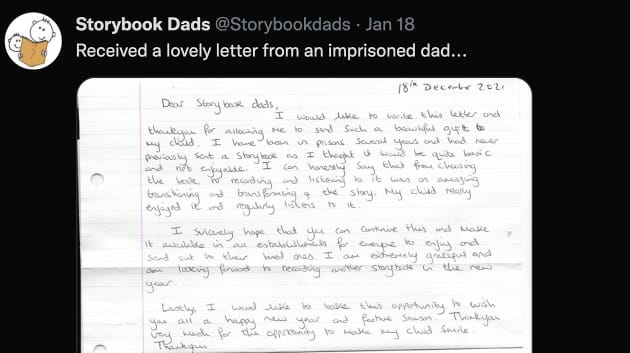 Storybook Dads @Storybookdads · Jan 18
Received a lovely letter from an imprisoned dad...
18th December 2021
Dear Storybook dads,
I would like to write this letter and
thankyou for allowing me to send such a beautiful gift to
my child. I have been in prisons several years and had never
previously sent a storybook as I thoght it would be quite basic
and not enjoyable. I can honestly say that from choosing
the book, to recording and listening to it was an amazing
transitioning and transforming of the story. My child really
enjoyed it and regularly listens to it.
I sincerely hope that you can continue this and make
it available in all establishments for everyone to enjoy and
send out to their loved ones. I am extremely grateful and
am looking forward to recording another storybook in the new
year.
Lastly, I would like to take this opportunity to wish
you all a happy new year and festive season. Thankyou
very much for the opportunity to make my child smile.
Thankyou